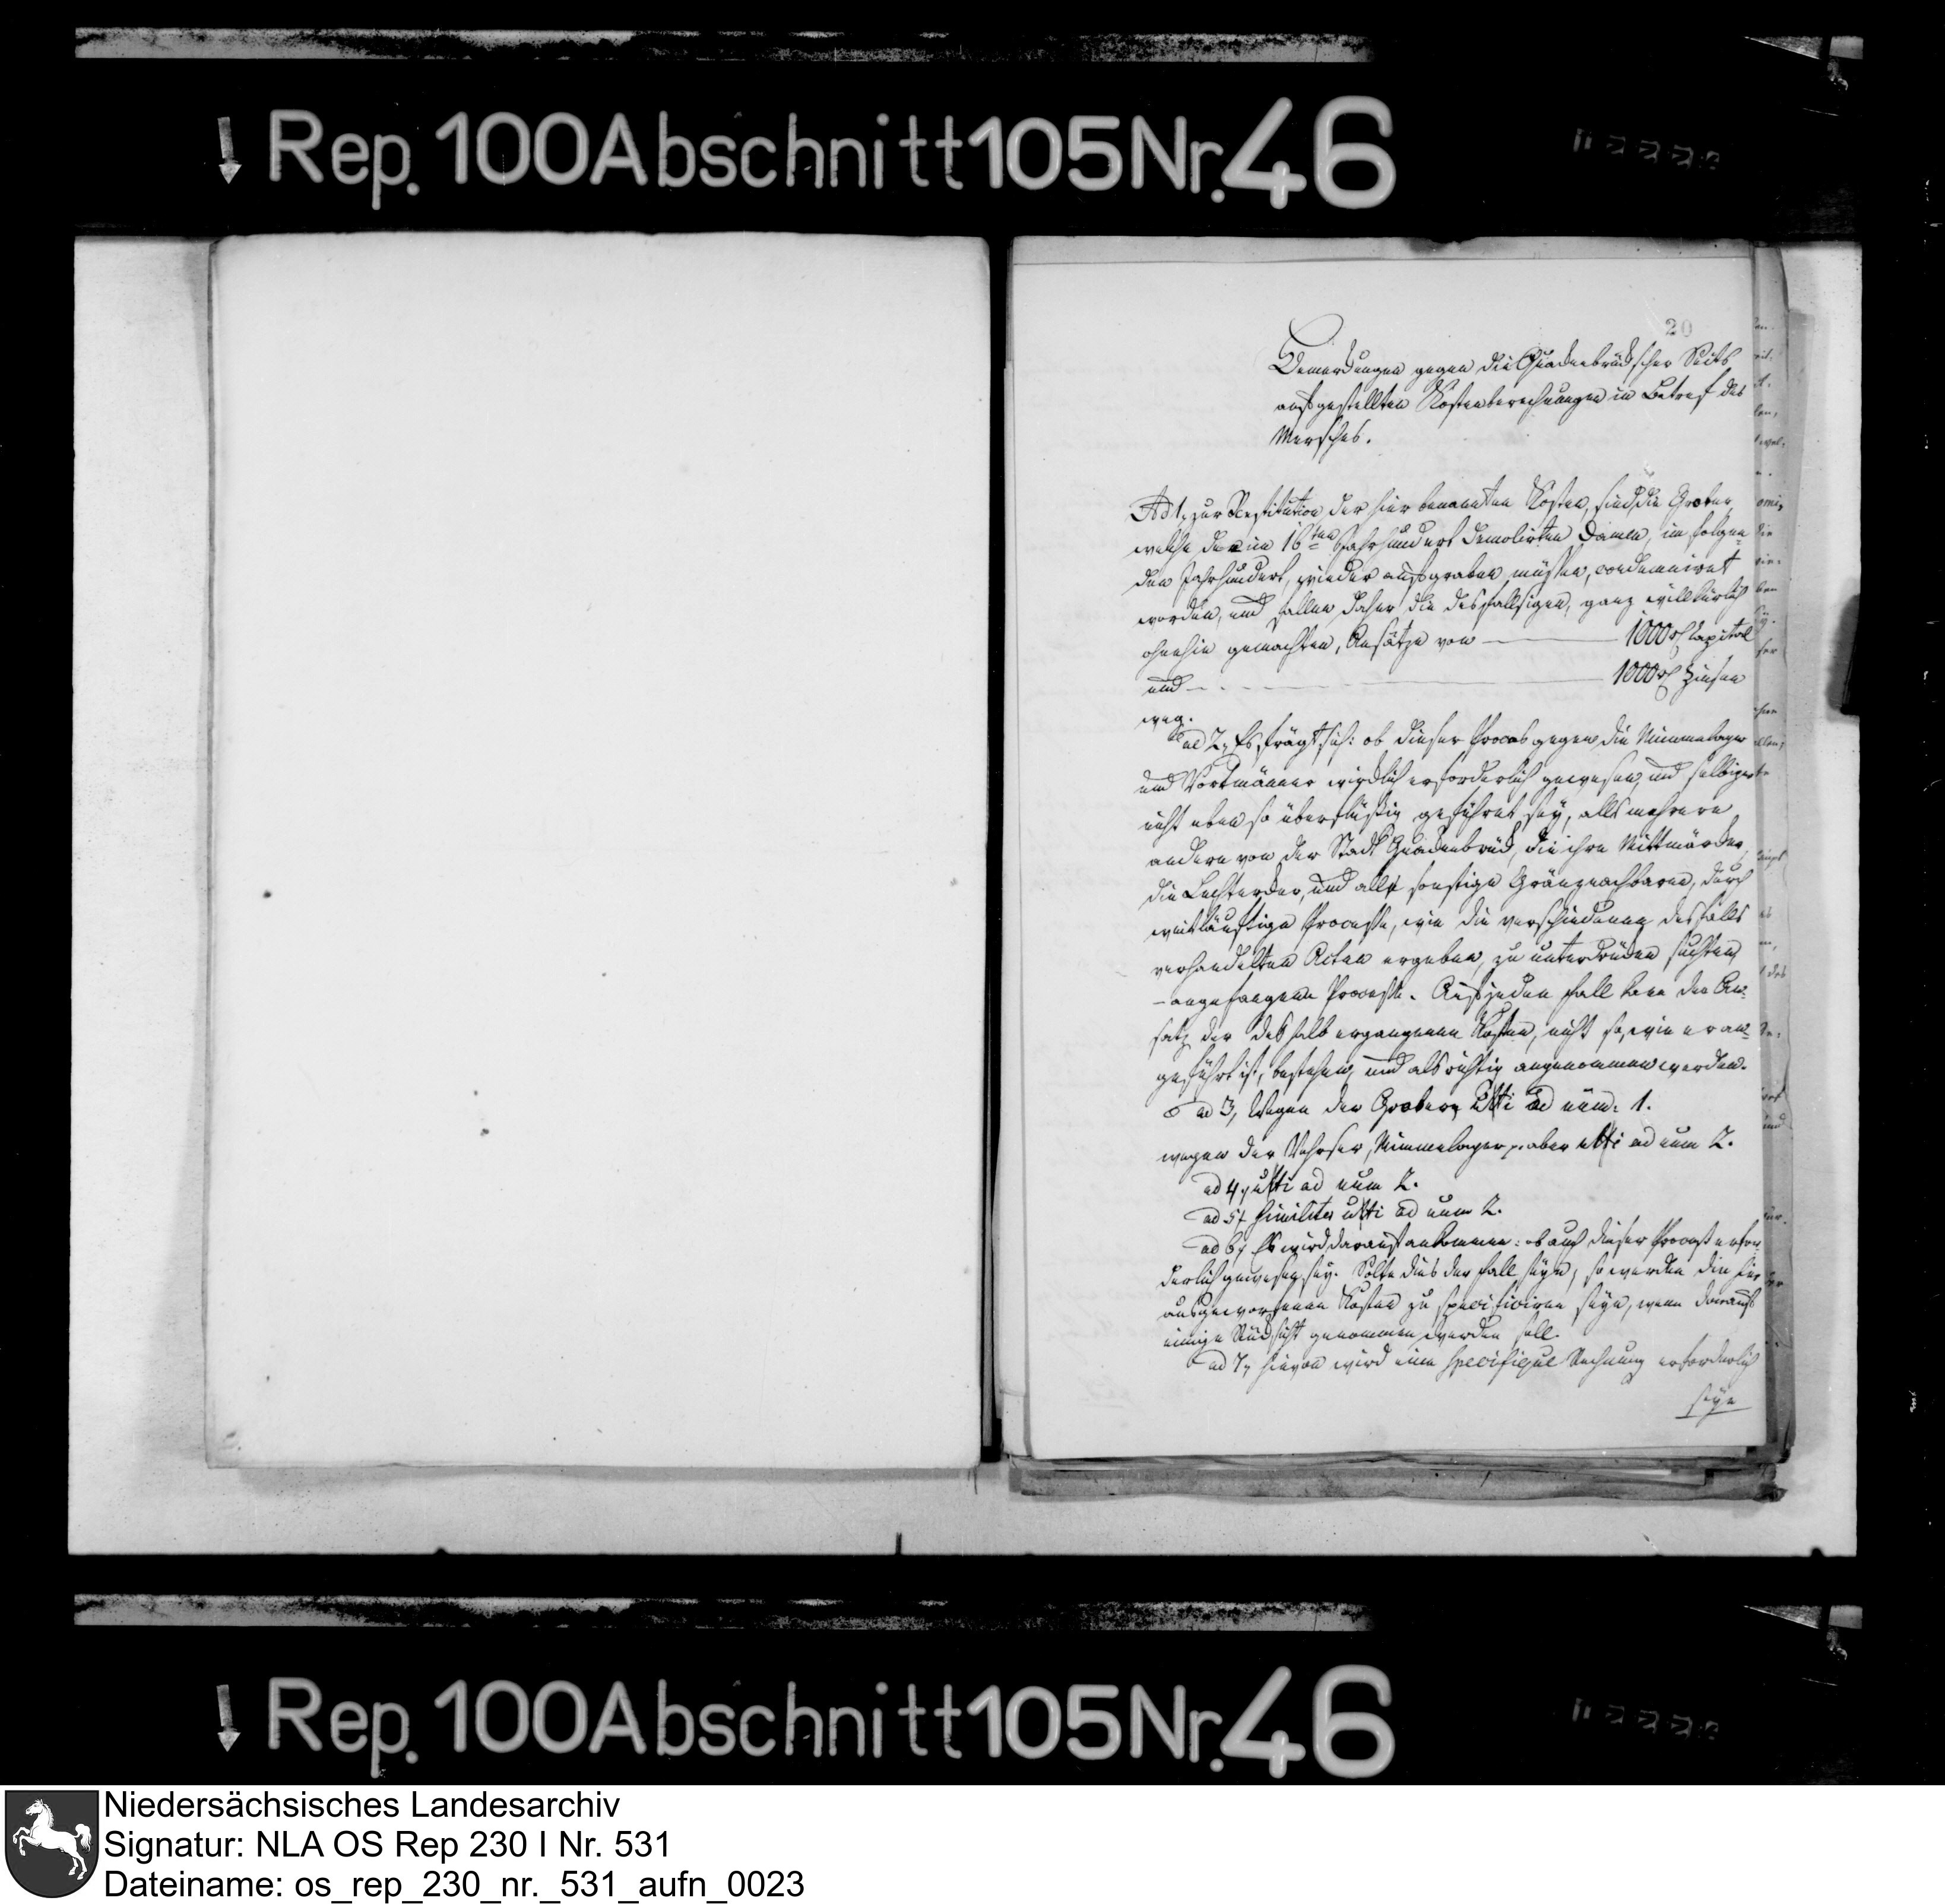 Rep. 100 Abschnitt 105 Nr. 46
20
Bemerckungen gegen die Quackenbrückscher Seits
aufgestellten Kostenberechnungen in Betref des
Mersches.
Ad 1, zur Restitution der hier benannten Kosten, sind die Groten,
welche den im 16ten Jahrhundert demolirten Damm, im folgen-
den Jahrhundert, wieder aufgraben müssen, condemniret
worden, und fallen daher die desfallsigen, ganz willkürlich
ohnehin gemachten, Ansätze von — 1000 rl Capital
und — 1000 rl Zinsen
weg.
ad 2, Es frägt sich: ob dieser Proces gegen die Nimmelager
und Vortmänner wircklich erforderlich gewesen, und selbiger
nicht eben so überflüßig geführet sey, alls mehrere
andere von der Stadt Quackenbrück, die ihre Mittmärcker,
die Lechtercker, und alle sonstige Gränznachbaren, durch
weitläuftige Processe, wie die verschiedenen desfalls
verhandelten Acten ergeben, zu unterdrücken suchten,
– angefangene Processe. Auf jeden Fall kann der An-
satz der deshalb ergangenen Kosten, nicht so, wie er an-
geführt ist, bestehen, und als richtig angenommen werden.
ad 3, Wegen der Groten, uti ad num: 1.
wegen der Vehrser, Nimmelager p. aber uti ad num 2.
ad 4, uti ad num 2.
ad 5, similiter uti ad num 2.
ad 6, Es wird darauf ankommen: ob auch dieser Proceß erfor-
derlich gewesen sey. Solte dies der Fall seyn, so werden die hier
ausgeworfenen Kosten zu specificiren seyn, wenn darauf
einige Rücksicht genommen werden soll.
ad 7, hievon wird eine specifique Rechnung erforderlich
seyn
Rep. 100 Abschnitt 105 Nr. 46
Niedersächsisches Landesarchiv
Signatur: NLA OS Rep 230 I Nr. 531
Dateiname: os_rep_230_nr._531_aufn_0023